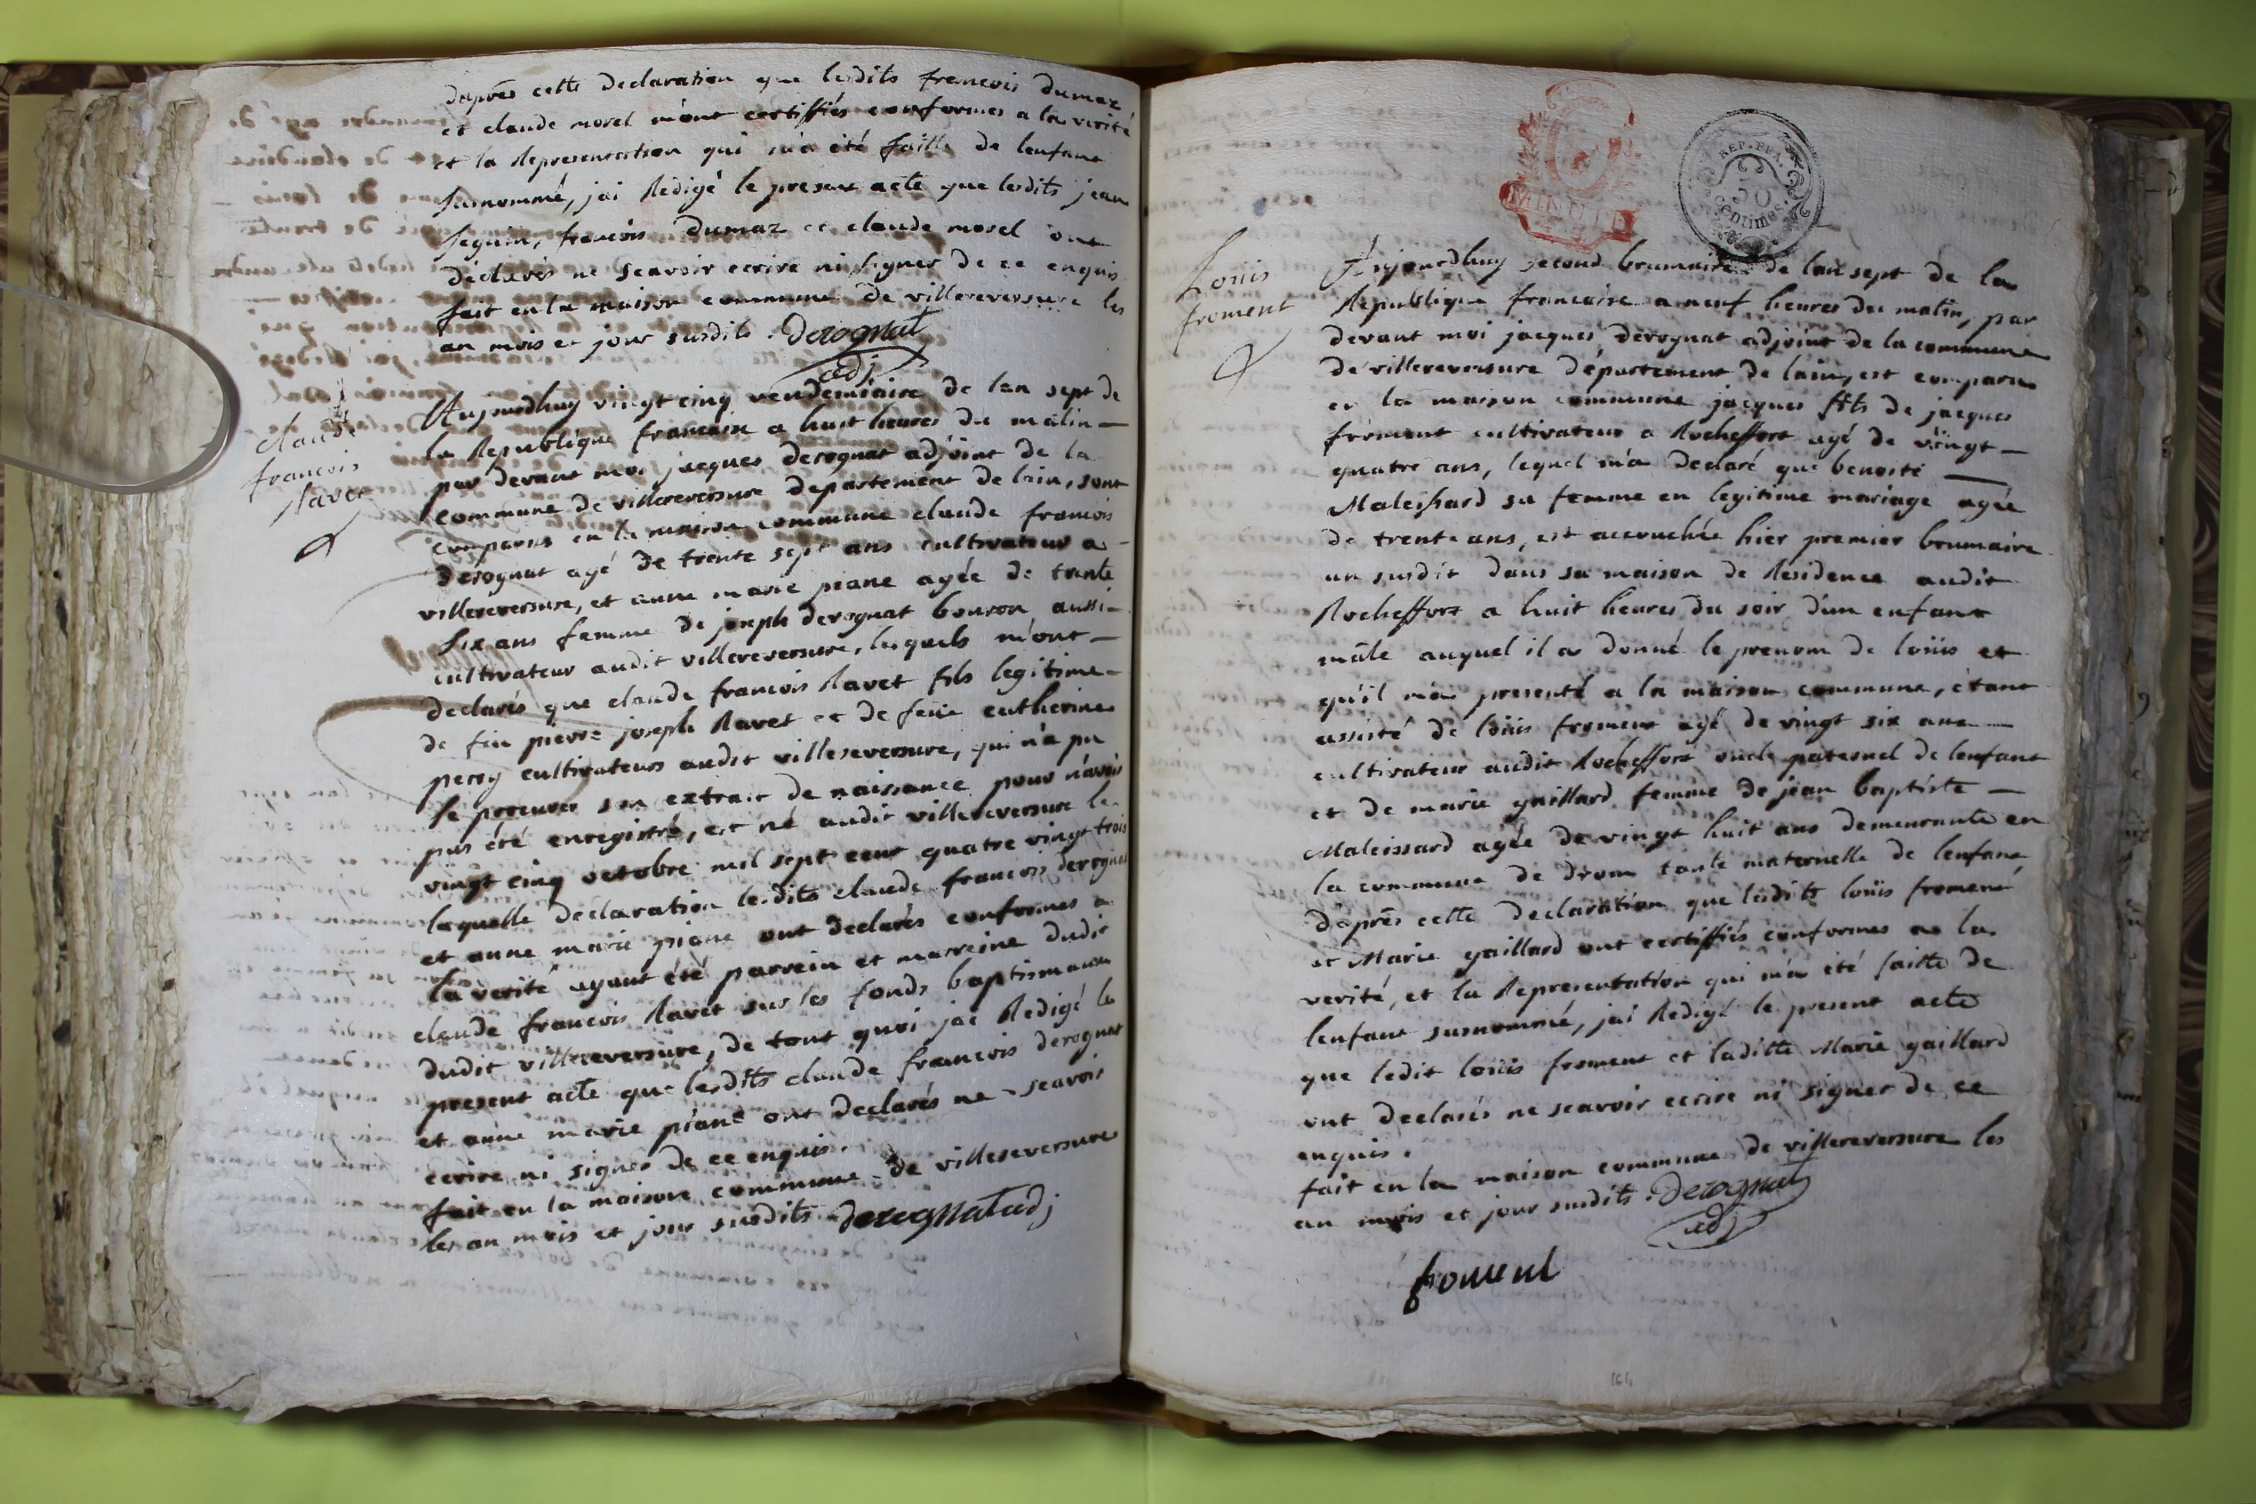 d'aprês cette declaration que lesdits francois dumaz
et claude morel m'ont certiffiés conformes a la verité
et la Representation qui m'a été faitte de lenfant
susnommé, jai Rédigé le present acte que lesdits jean
seguin, francois Dumaz et claude morel ont
déclarés ne scavoir ecrire ni signer de ce enquis
fait en la maison commune de villereversure les
an mois et jour susdits. Derognat
adj
claude
francois
Ravet
Aujourdhuy vingt cinq vendemiaire de lan sept de
la Republique francaise a huit heures du matin
par devant moi jacques derognat adjoint de la
commune de villereversure departement de lain, sont
comparus en la maison commune claude francois
derognat agé de trente sept ans cultivateur a
villereversure, et anne marie piane agée de trente
six ans femme de joseph derognat bouron aussi
cultivateur audit villereversure, lesquels m'ont
declarés que claude francois Ravet fils legitime
de feu pierre joseph Ravet et de feüe catherine
perroy cultivateurs audit villereversure, qui n'a pu
se procurer son extrait de naissance pour n'avoir
pas été enregistré, est né audit villereversure le
vingt cinq octobre mil sept cent quatre vingt trois
laquelle declaration lesdits claude francois derognat
et anne marie piane ont declarés conformes a
la verité ayant été parrein et marreine dudit
claude francois Ravet sur les fonds baptismaux
dudit villereversure, de tout quoi jai Redigé le
present acte que lesdits claude francois derognat
et anne marie piane ont declarés ne scavoir
ecrire ni signer de ce enquis.
fait en la maison commune de villereversure
les an mois et jour susdits. derognat adj
MINUTE
REP. FRA.
50
centimes
Loüis
froment
Aujourdhuy second brumaire de lan sept de la
Republique francaise a neuf heures du matin, par
devant moi jacques derognat adjoint de la commune
de villereversure département de lain, est comparu
en la maison commune jacques fils de jacques
froment cultivateur a Rocheffort agé de vingt
quatre ans, lequel m'a declaré que benoite
Maleissard sa femme en legitime mariage agée
de trente ans, est accouchée hier premier brumaire
an susdit dans sa maison de Residence audit
Rocheffort a huit heures du soir d'un enfant
mâle auquel il a donné le prenom de loüis et
qu'il m'a presenté a la maison commune, étant
assisté de loüis froment agé de vingt six ans
cultivateur audit Rocheffort oncle paternel de lenfant
et de marie gaillard femme de jean baptiste
Maleissard agée de vingt huit ans demeurante en
la commune de drom tante maternelle de lenfant
d'aprês cette declaration que lesdits loüis froment
et Marie gaillard ont certiffiés conformes a la
verité, et la Representation qui m'a été faitte de
lenfant susnommé, jai Redigé le present acte
que ledit loüis froment et laditte Marie gaillard
ont declarés ne scavoir ecrire ni signer de ce
enquis.
fait en la maison commune de villereversure les
an mois et jour susdits. Derognat
adj
froment